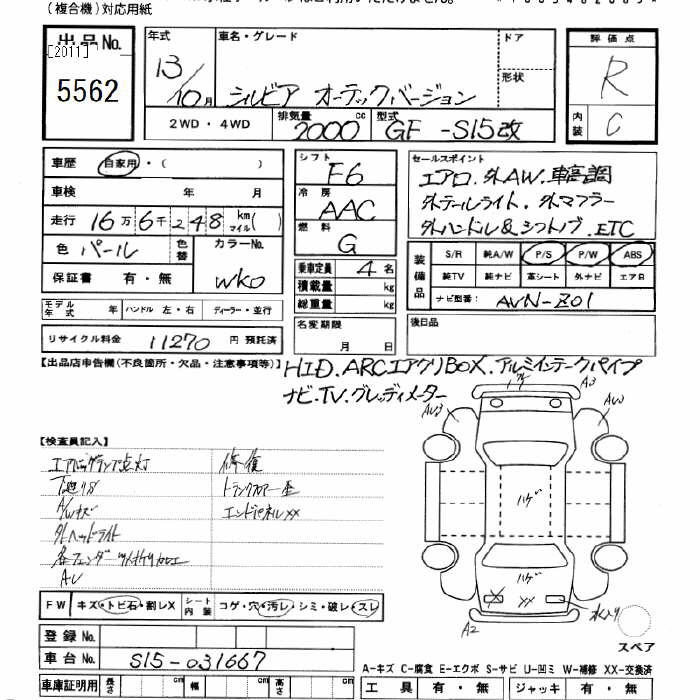 (複合機)対応用紙
出品No.
[2011]
5562
年式 車名・グレード ドア 評価点
13/10月 シルビア オーテックバージョン 形状 R
2WD・4WD 排気量 2000 cc 型式 GF-S15改 内装 C
車歴 自家用・( )
車検 年 月
走行 16万6千248 km マイル( )
色 パール 色替 カラーNo. WK0
保証書 有・無
シフト F6
冷房 AAC
燃料 G
乗車定員 4名
積載量 kg
総重量 kg
セールスポイント
エアロ.外AW.車高調
外テールライト.外マフラー
外ハンドル&シフトノブ.ETC
装備品 S/R 純A/W P/S P/W ABS
純TV 純ナビ 革シート 外ナビ エアB
ナビ型番: AVN-Z01
モデル年式 年 ハンドル 左・右 ディーラー・並行
名変期限 月 日
後日品
リサイクル料金 11270 円 預託済
【出品店申告欄(不良箇所・欠品・注意事項等)】
HID.ARCエアクリBOX.アルミインテークパイプ
ナビ.TV.グレッディメーター
【検査員記入】
エアバッグランプ点灯
下廻りサビ
A/Wキズ
外ヘッドライト
修復
トランクフロアー歪
エンドパネルXX
AU
A3
AU3
ハゲ
ハゲ
XX
A2
水入り
スペア
FW キズ・トビ石・割レX シート内装 コゲ・穴・汚レ・シミ・破レ・スレ
登録No.
車台No. S15-031667
車庫証明用 長さ cm 幅 cm 高さ cm
A-キズ C-腐食 E-エクボ S-サビ U-凹ミ W-補修 XX-交換済
工具 有・無 ジャッキ 有・無